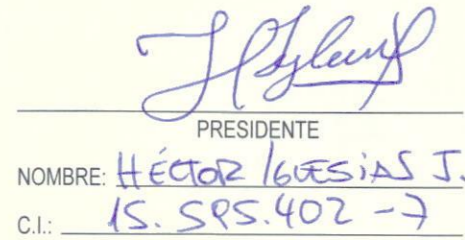 PRESIDENTE
NOMBRE: HÉCTOR IGLESIAS J.
C.I.: 15.595.402-7